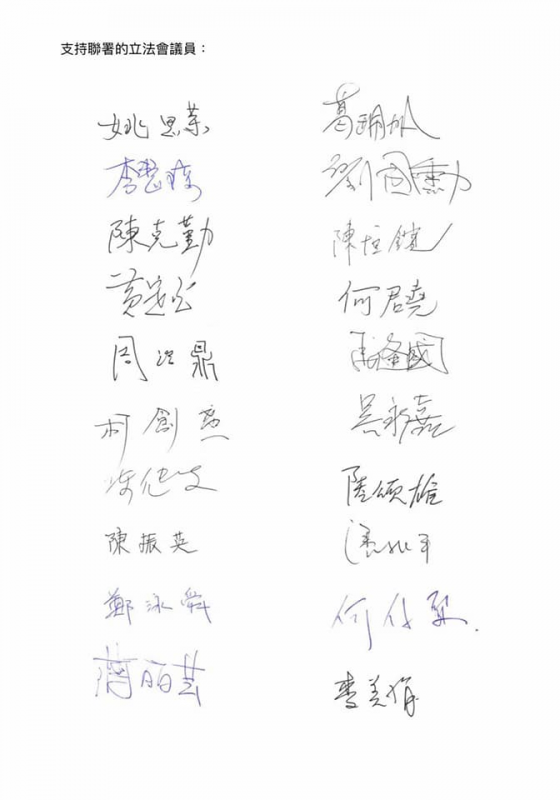 支持聯署的立法會議員：
姚思榮
李慧琼
陳克勤
黃定光
周浩鼎
柯創盛
陳健波
陳振英
鄭泳舜
蔣麗芸
葛珮帆
劉國勳
陳恒鑌
何君堯
馬逢國
吳永嘉
陸頌雄
潘兆平
何俊賢
麥美娟